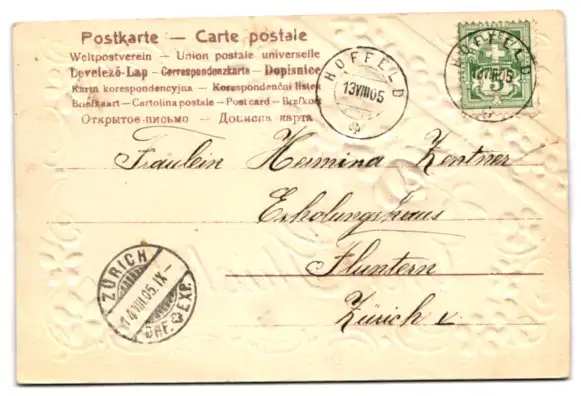 Postkarte – Carte postale
Weltpostverein – Union postale universelle
Levelező-Lap – Correspondenzkarte – Dopisnice
Karta korespondencyjna – Korespondenční listek
Briefkaart – Cartolina postale – Post card – Brefkort
Открытое письмо – Дописна карта
HOFFELD
13 VIII 05
HOFFELD
13 VIII 05
5
Fräulein Hermina Zentner
Erholungshaus
Fluntern
Zürich V.
ZÜRICH
14 VIII 05. IX –
BRF. EXP.